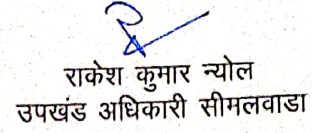 राकेश कुमार न्योल
उपखंड अधिकारी सीमलवाडा